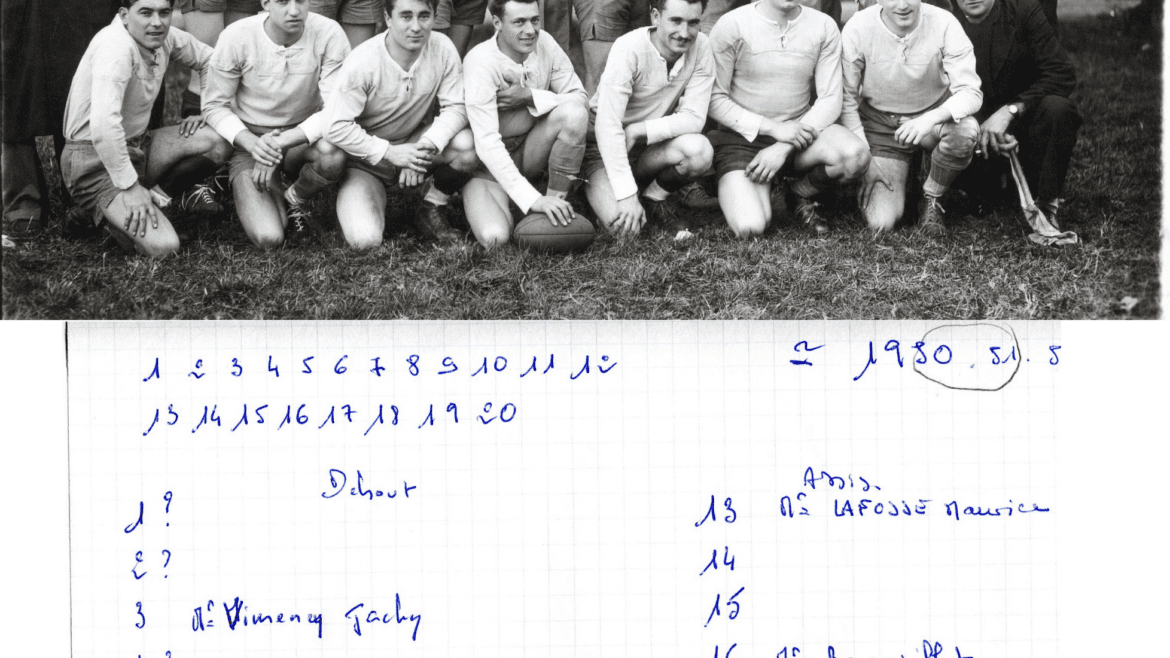 1 2 3 4 5 6 7 8 9 10 11 12
≃ 1950.51.5
13 14 15 16 17 18 19 20
Debout
Assis.
1 ?
13 Mr LAFOSSE Maurice
2 ?
14
3 Mr Jacky
15
16 Mr